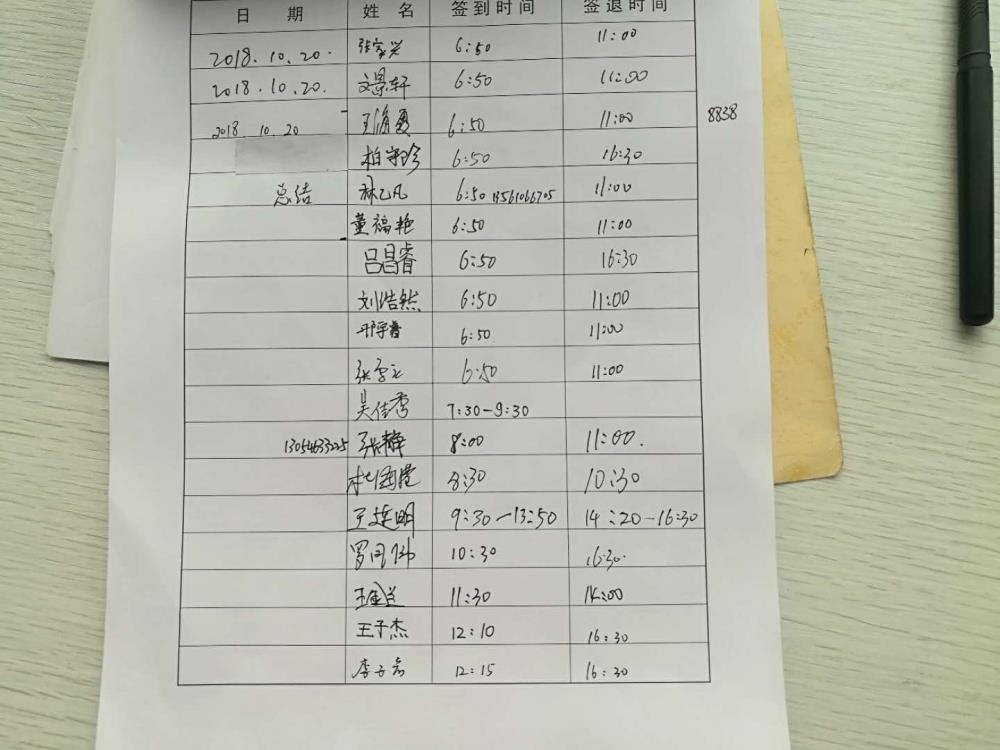 日 期 姓 名 签到时间 签退时间
2018.10.20. 张家兴 6:50 11:00
2018.10.20. 文景轩 6:50 11:00
2018.10.20 王海霞 6:50 11:00 8838
柏守珍 6:50 16:30
总结 林乙凡 6:50 13561066705 11:00
董福艳 6:50 11:00
吕昌睿 6:50 16:30
刘浩然 6:50 11:00
6:50 11:00
张 6:50 11:00
吴佳秀 7:30-9:30
13054633225 张静 8:00 11:00.
杜 8:30 10:30
王连明 9:30-13:50 14:20-16:30
罗 10:30 16:30.
王 兰 11:30 14:00
王子杰 12:10 16:30
李子 12:15 16:30